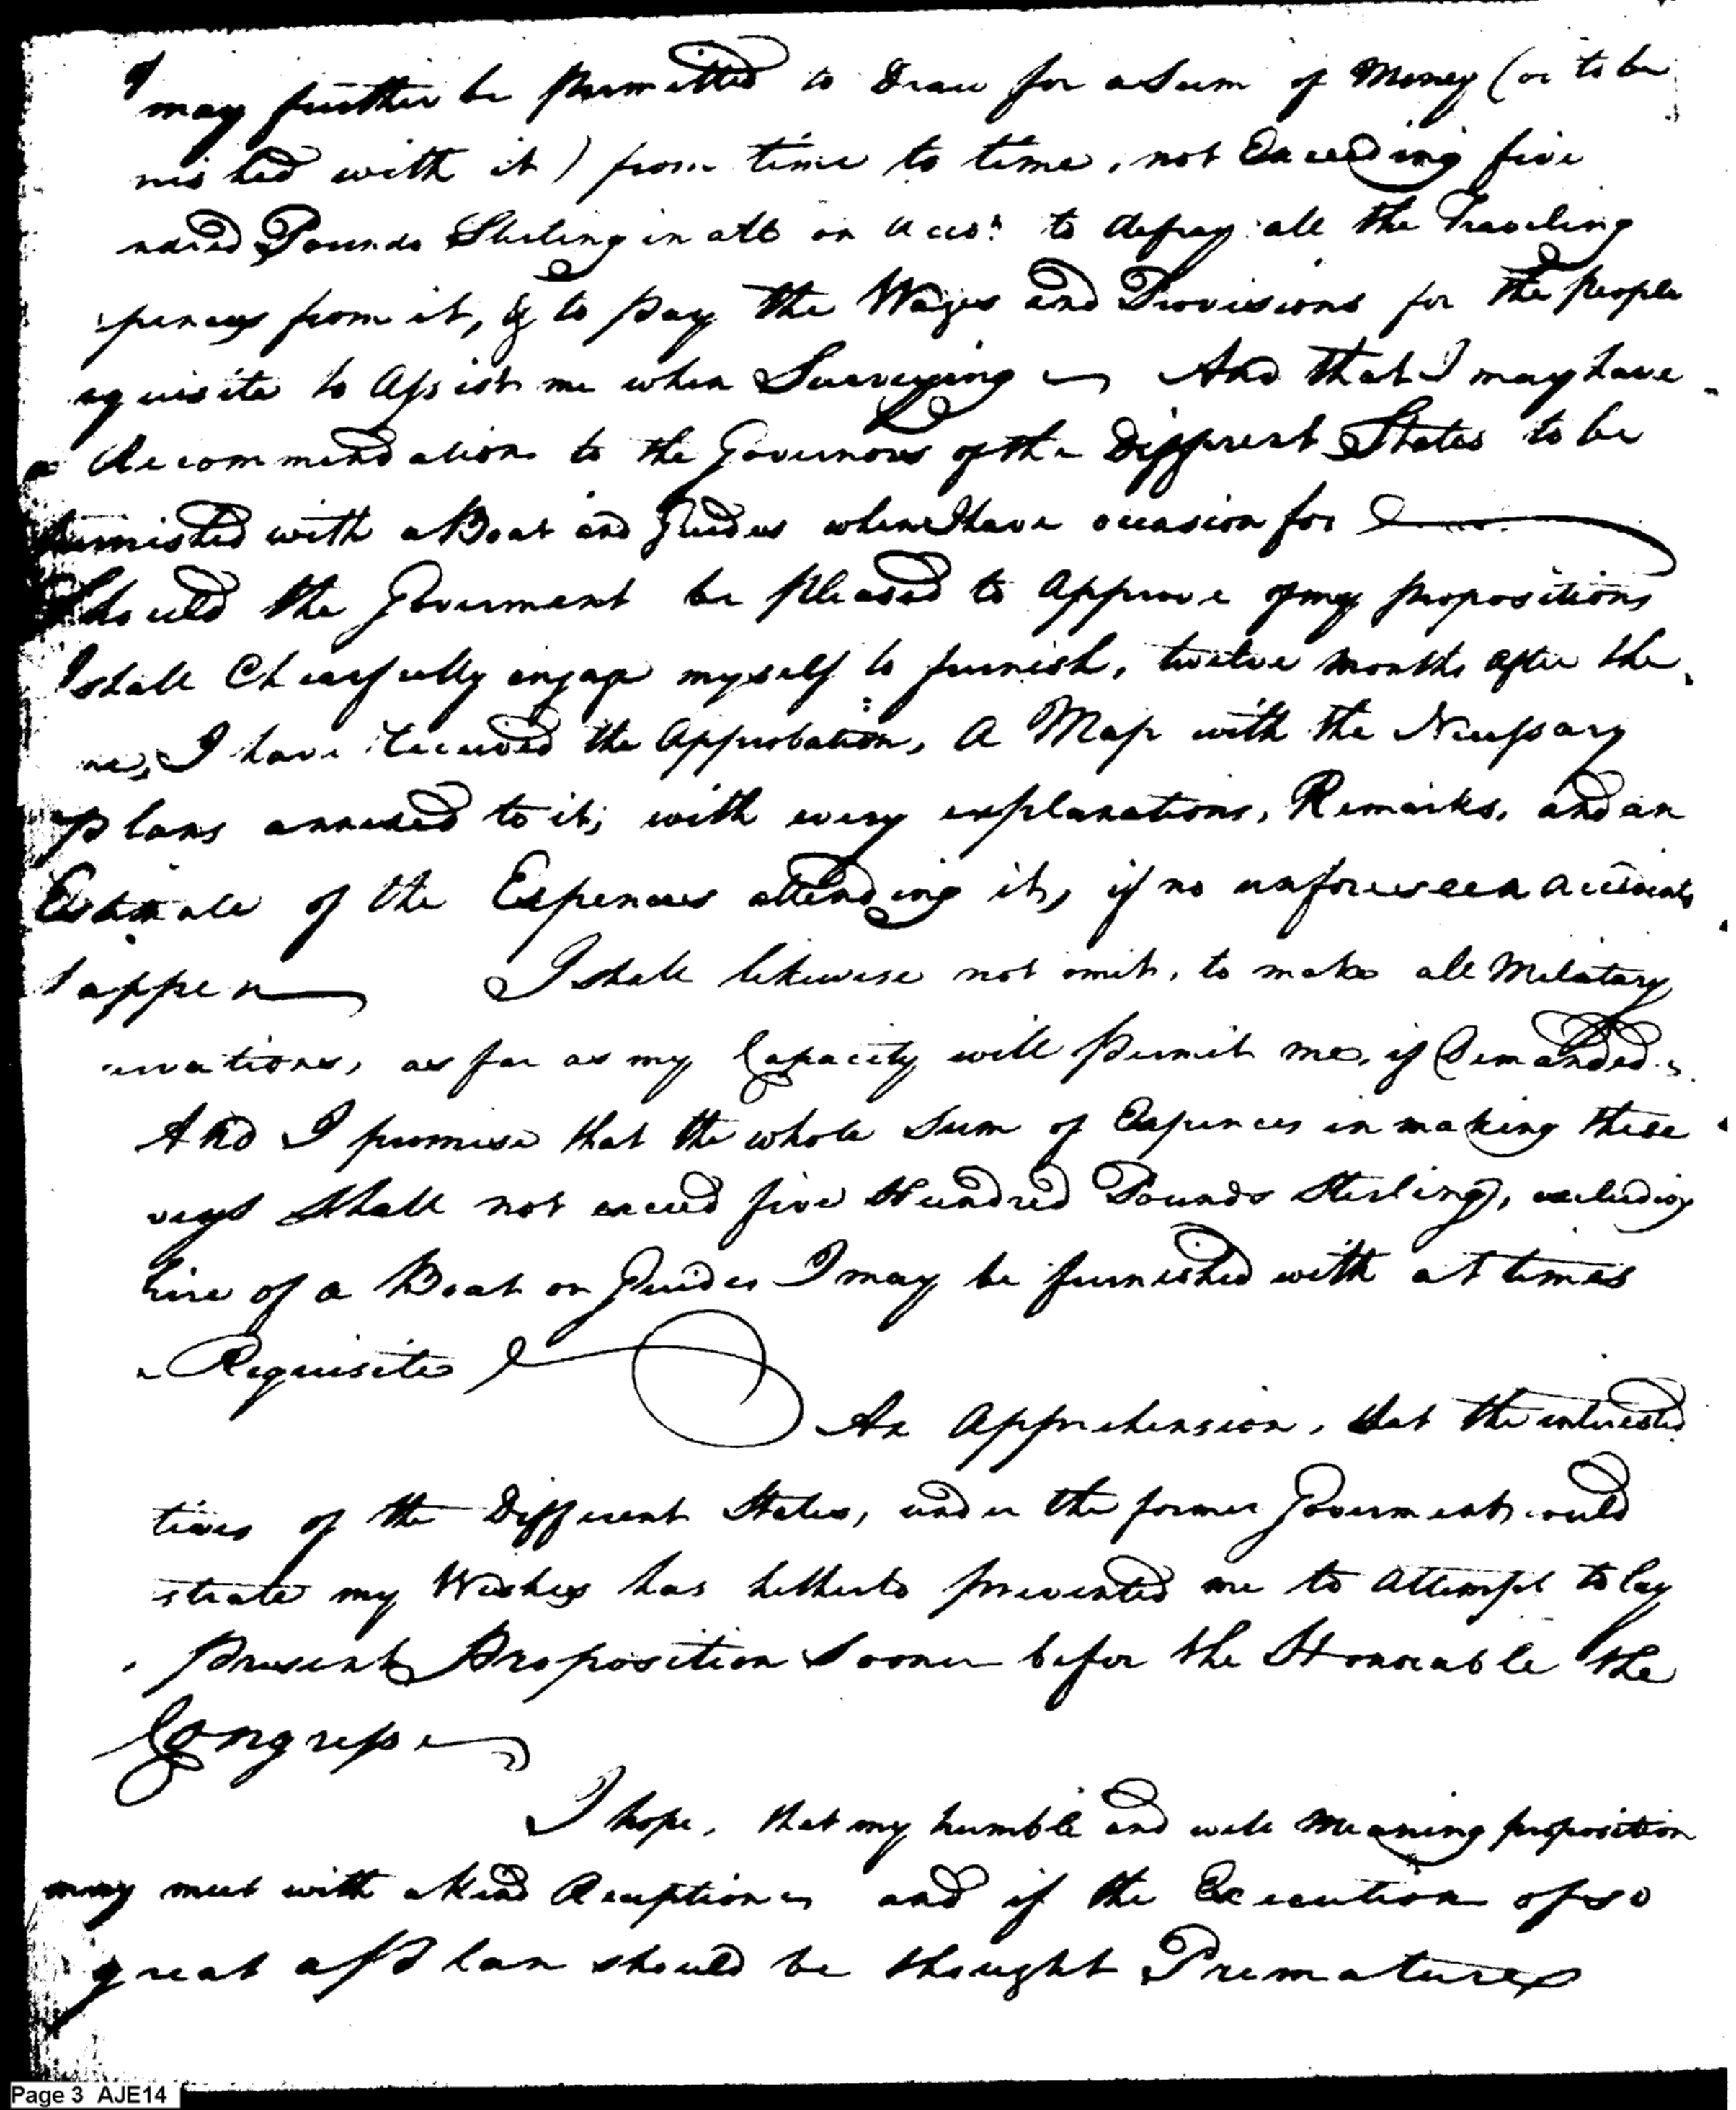 I may further be Permitted to Draw for a Sum of Money (or to be
nished with it) from time to time, not Exceeding five
ndred Pounds Sterling in all on Accot. to defray all the Traveling
pences from it, & to pay the Wages and Provisions for the People
equisite to Assist me when Surveying And that I may have
a Recommendation to the Governors of the Different States to be
furnished with a Boat and Guides when I have occasion for
Should the Goverment be pleased to Approve of my propositions
I shall Chearfully engage myself to furnish, twelve months after the
me, I have received the Approbation, A Map with the Necessary
plans annexed to it; with every explanations, Remarks, and an
Estimate of the Expences attending it, if no unforeseen accidents
happen I shall likewise not omit, to make all Melitary
ervations, as far as my Capacity will permit me, if Demanded.
And I promise that the whole Sum of Expences in making these
veys shall not exceed five Hundred Pounds Sterling, excluding
hire of a Boat or Guides I may be furnished with at times
Requisite
An Apprehension, that the interested
tives of the Different States, under the former Goverment would
strate my Wishes has hitherto prevented me to attempt to lay
present Proposition Sooner befor the Honorable the
Congress
I hope, that my humble and well meaning proposition
may meet with a kind Reception and if the Execution of so
great a Plan should be thought Premature
Page 3 AJE14